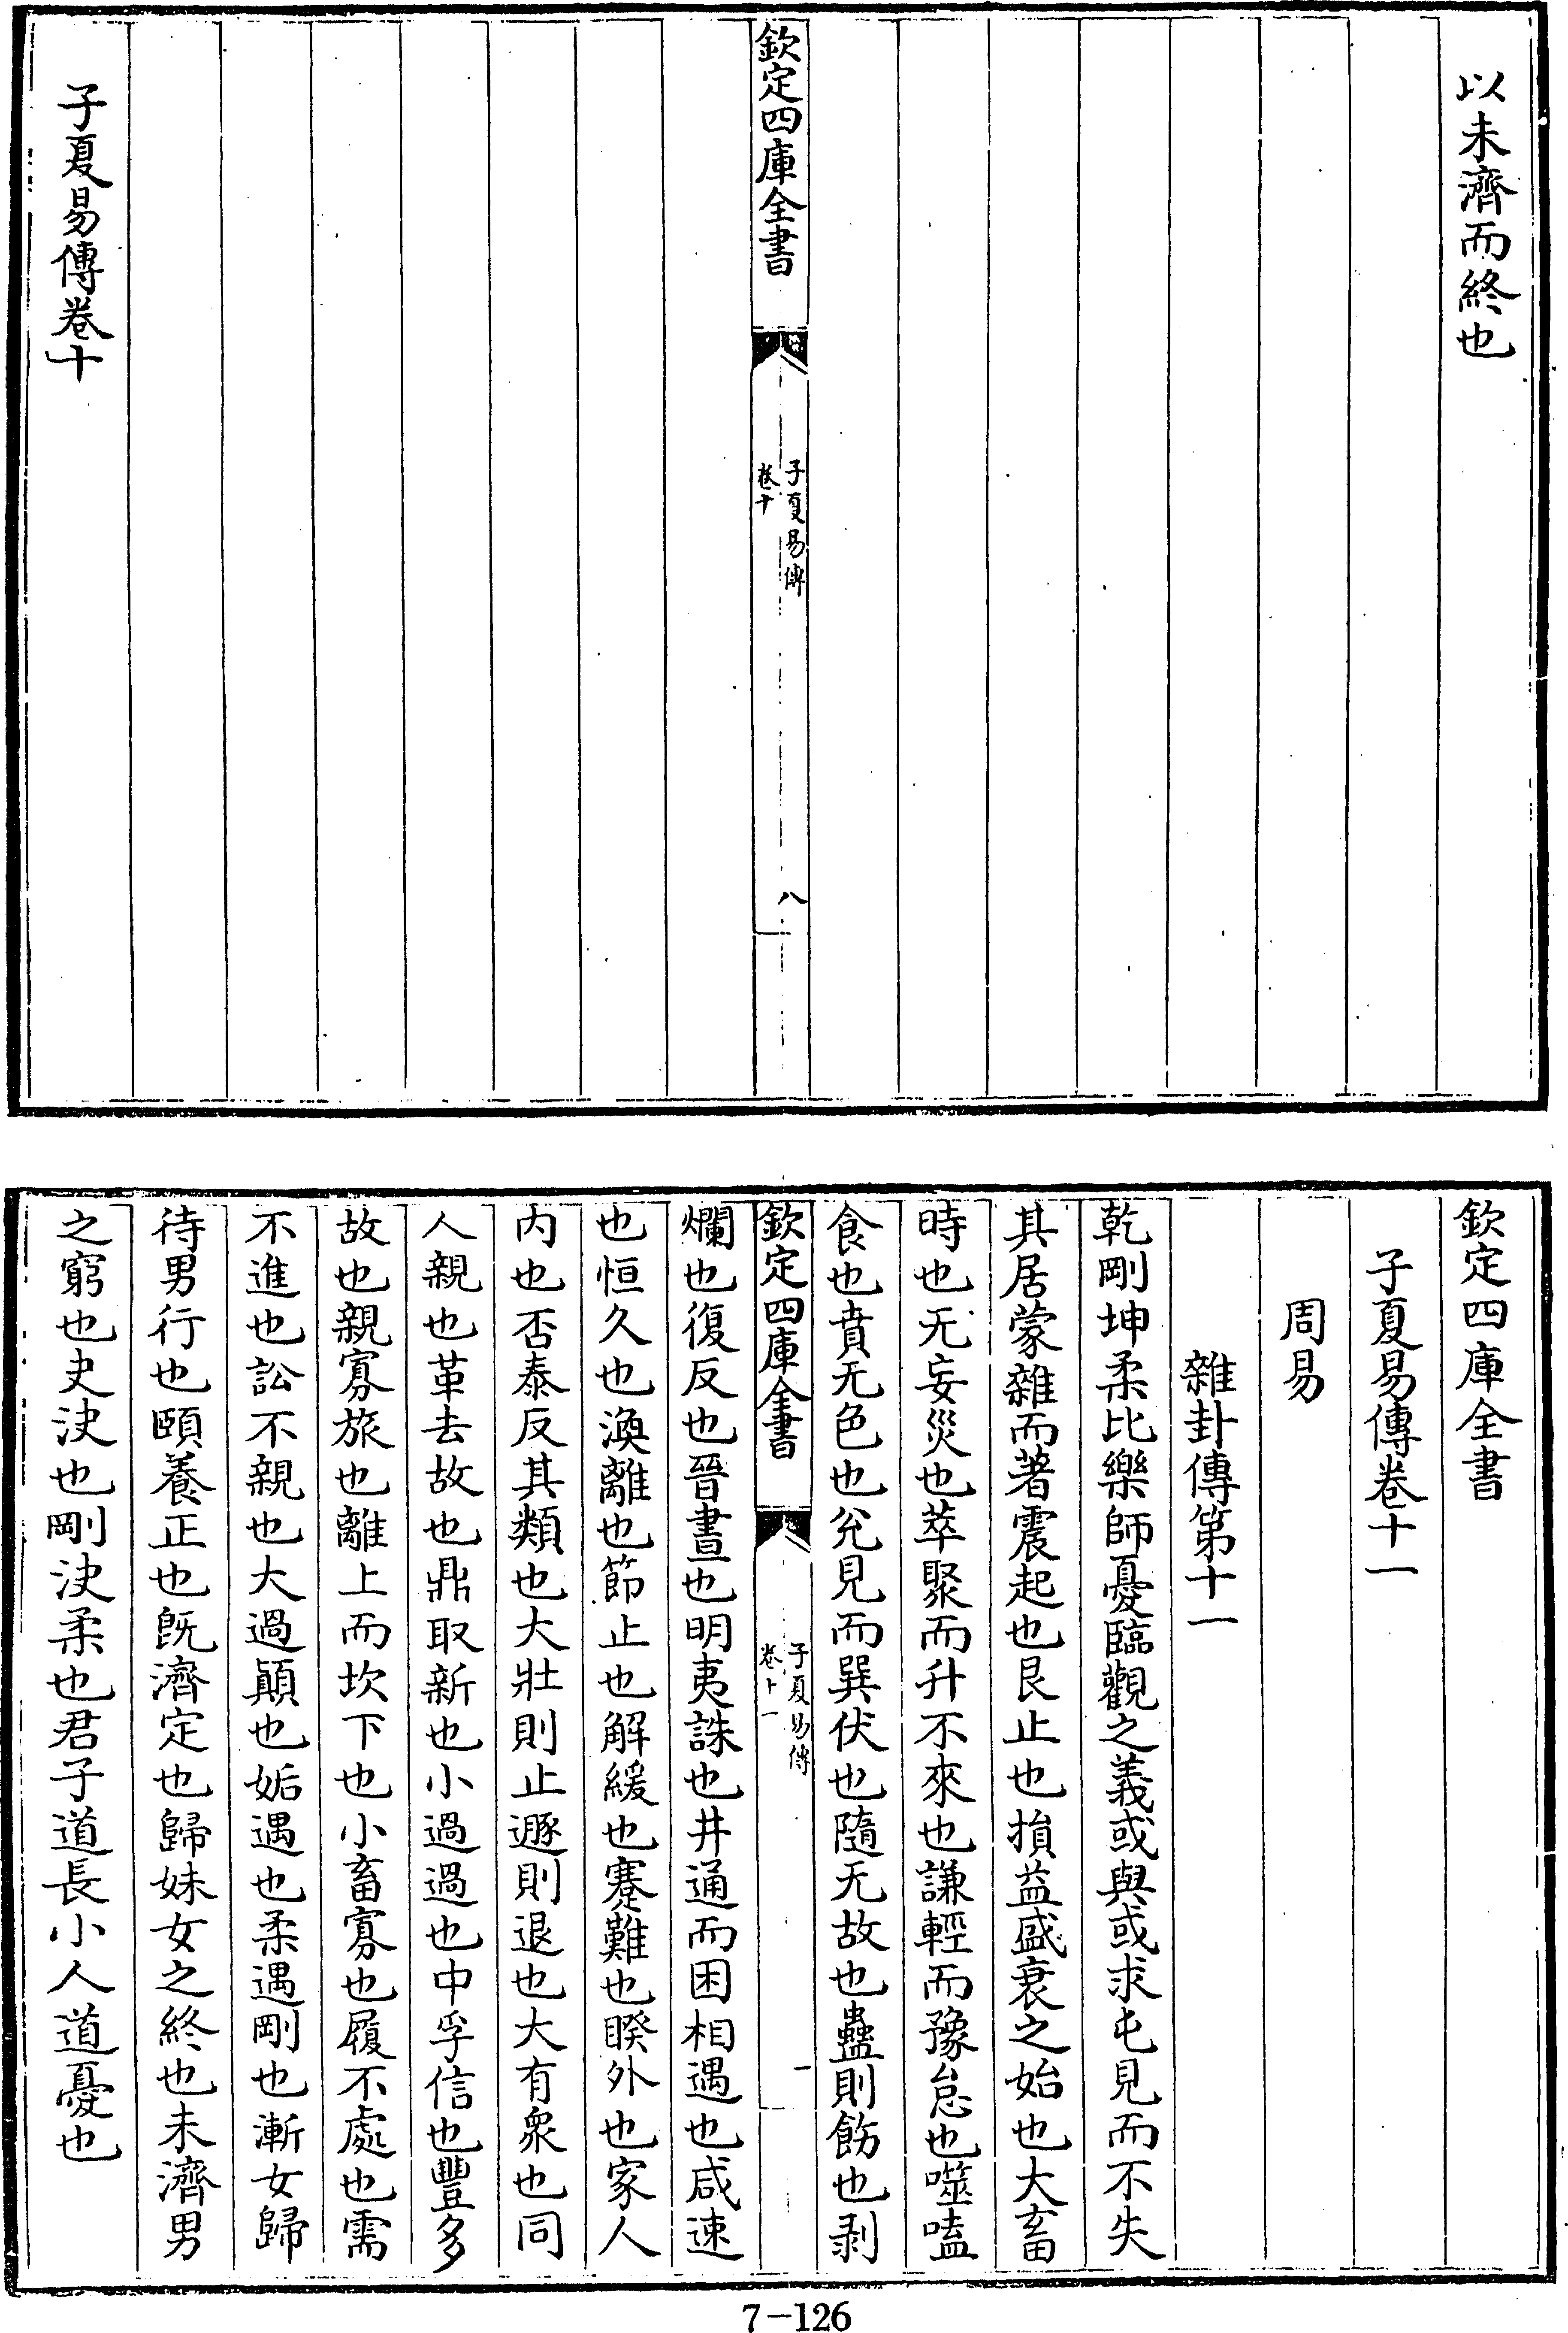 以未濟而終也
欽定四庫全書
子夏易傳
卷十
八
子夏易傳卷十
欽定四庫全書
子夏易傳卷十一
周易
雜卦傳第十一
乾剛坤柔比樂師憂臨觀之義或與或求屯見而不失
其居蒙雜而著震起也艮止也損益盛衰之始也大畜
時也无妄災也萃聚而升不來也謙輕而豫怠也噬嗑
食也賁无色也兊見而巽伏也隨无故也蠱則飭也剥
欽定四庫全書
子夏易傳
卷十一
一
爛也復反也晉晝也明夷誅也井通而困相遇也咸速
也恒久也渙離也節止也解緩也蹇難也睽外也家人
内也否泰反其類也大壯則止遯則退也大有衆也同
人親也革去故也鼎取新也小過過也中孚信也豐多
故也親寡旅也離上而坎下也小畜寡也履不處也需
不進也訟不親也大過顛也姤遇也柔遇剛也漸女歸
待男行也頤養正也既濟定也歸妹女之終也未濟男
之窮也夬決也剛決柔也君子道長小人道憂也
7-126